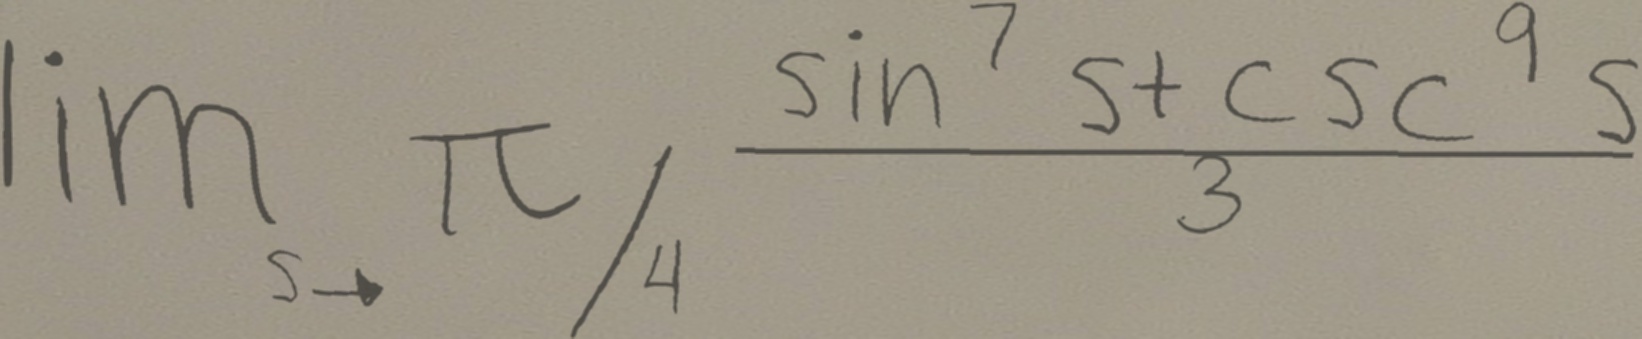 \lim_{s \to \pi/4} \frac{\sin^7 s + \csc^9 s}{3}